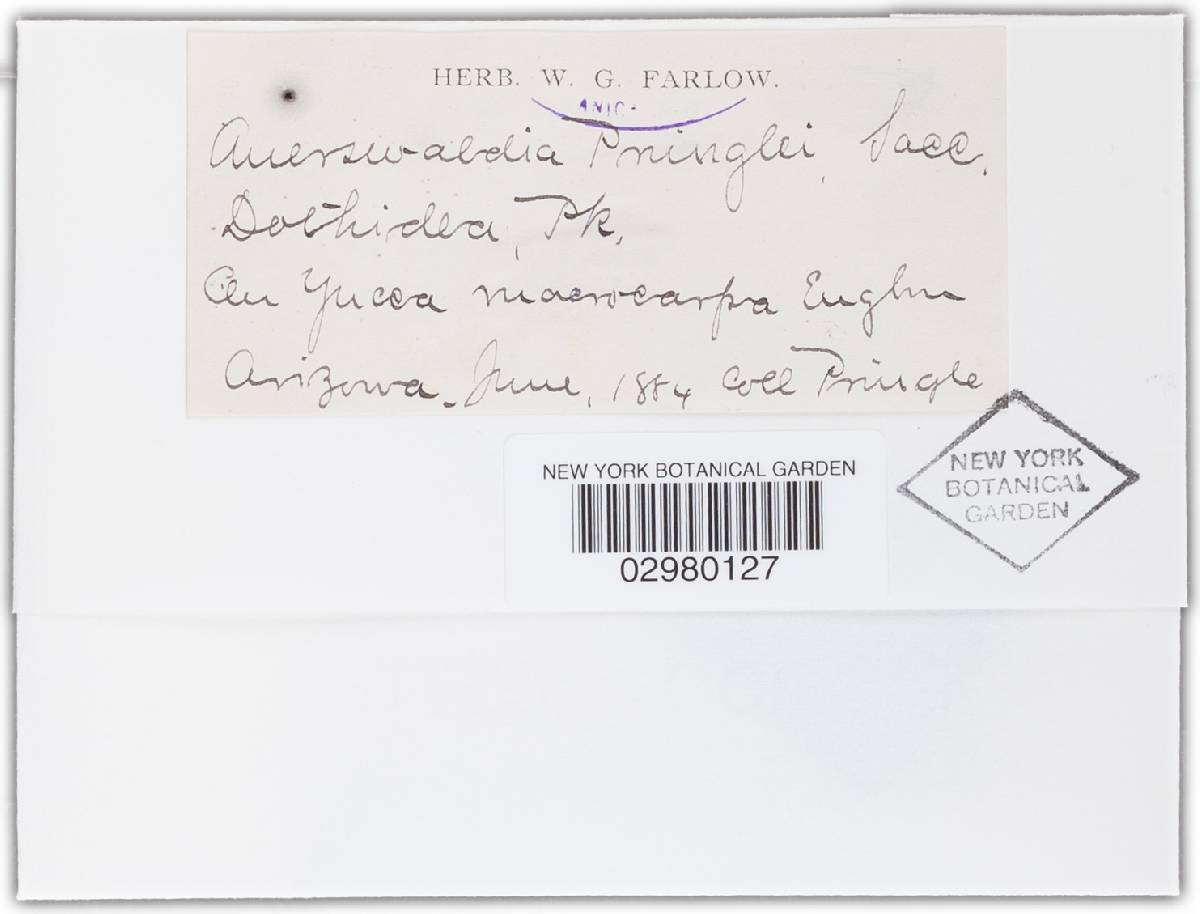 HERB. W. G. FARLOW.
ANIC
Auerswaldia Pringlei, Sacc.
Dothidea, Pk.
On Yucca macrocarpa Englm
Arizona. June, 1884 Coll Pringle
NEW YORK BOTANICAL GARDEN
02980127
NEW YORK
BOTANICAL
GARDEN